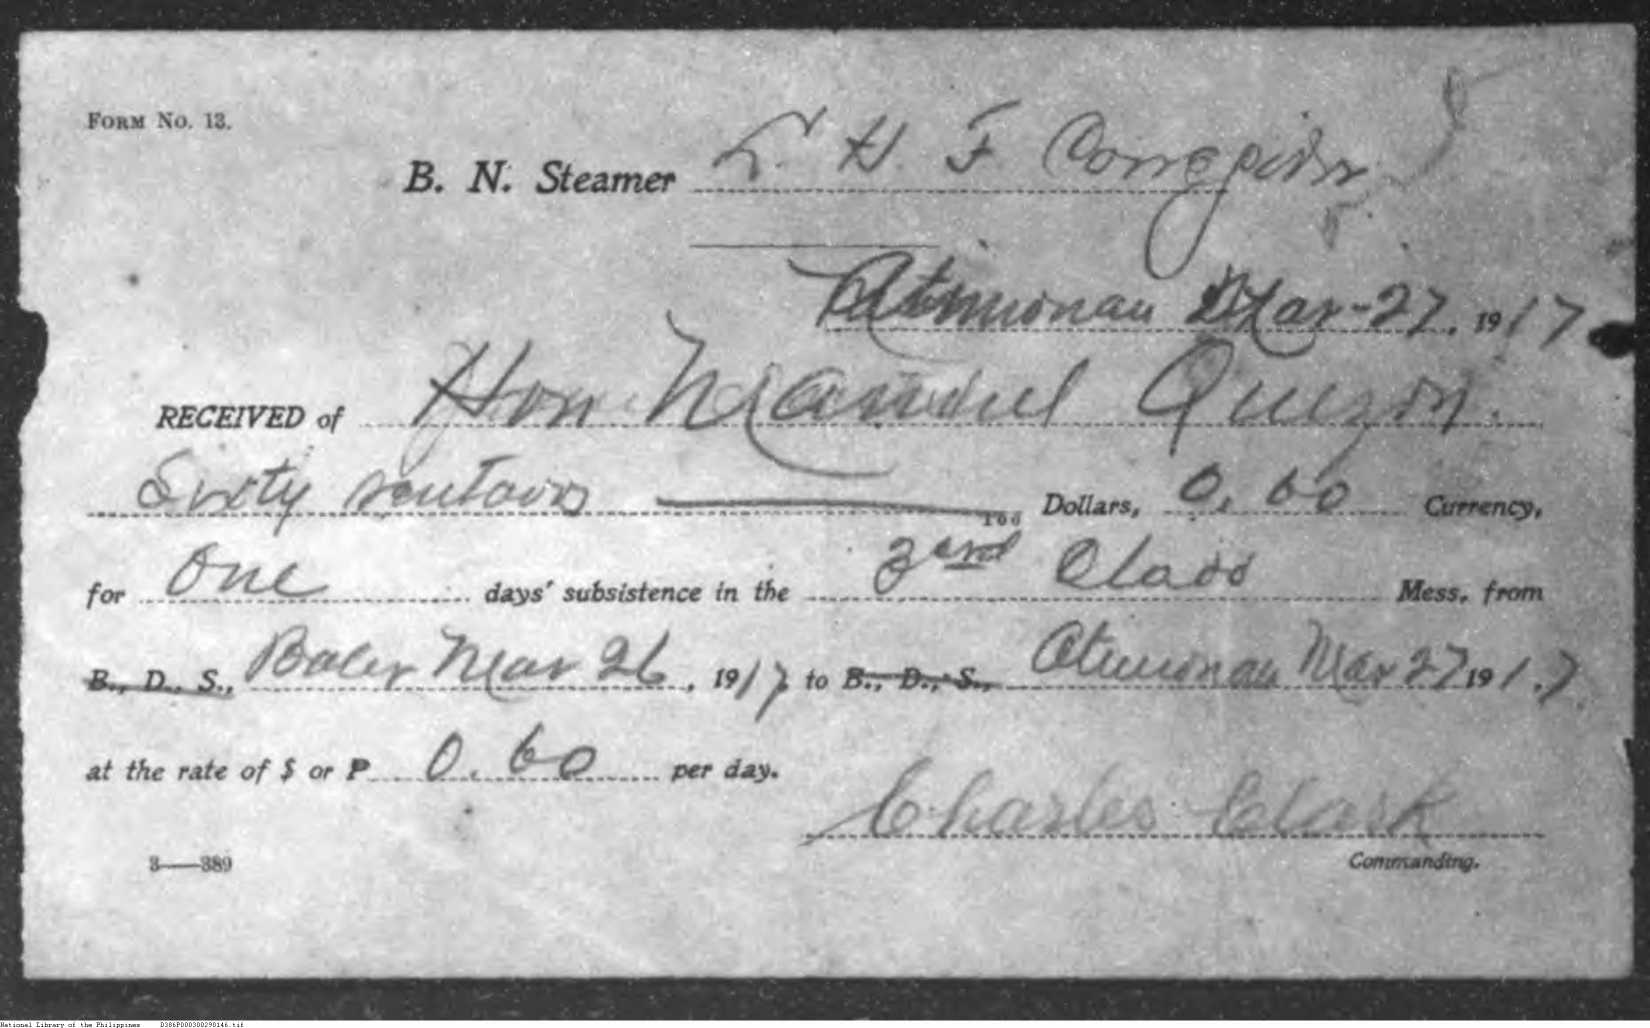 FORM No. 13.
B. N. Steamer L. H. F Corregidor
Atimonan Mar-27, 1917
RECEIVED of Hon Manuel Quezon.
Sixty sentavos 100 Dollars, 0.60 Currency,
for One days' subsistence in the 3rd Class Mess, from
B., D., S., Baler Mar 26, 1917 to B., D., S., Atimonan Mar 27 191.7
at the rate of $ or P 0.60 per day.
Charles Clark
Commanding.
3—389
National Library of the Philippines D386P000300290146.tif